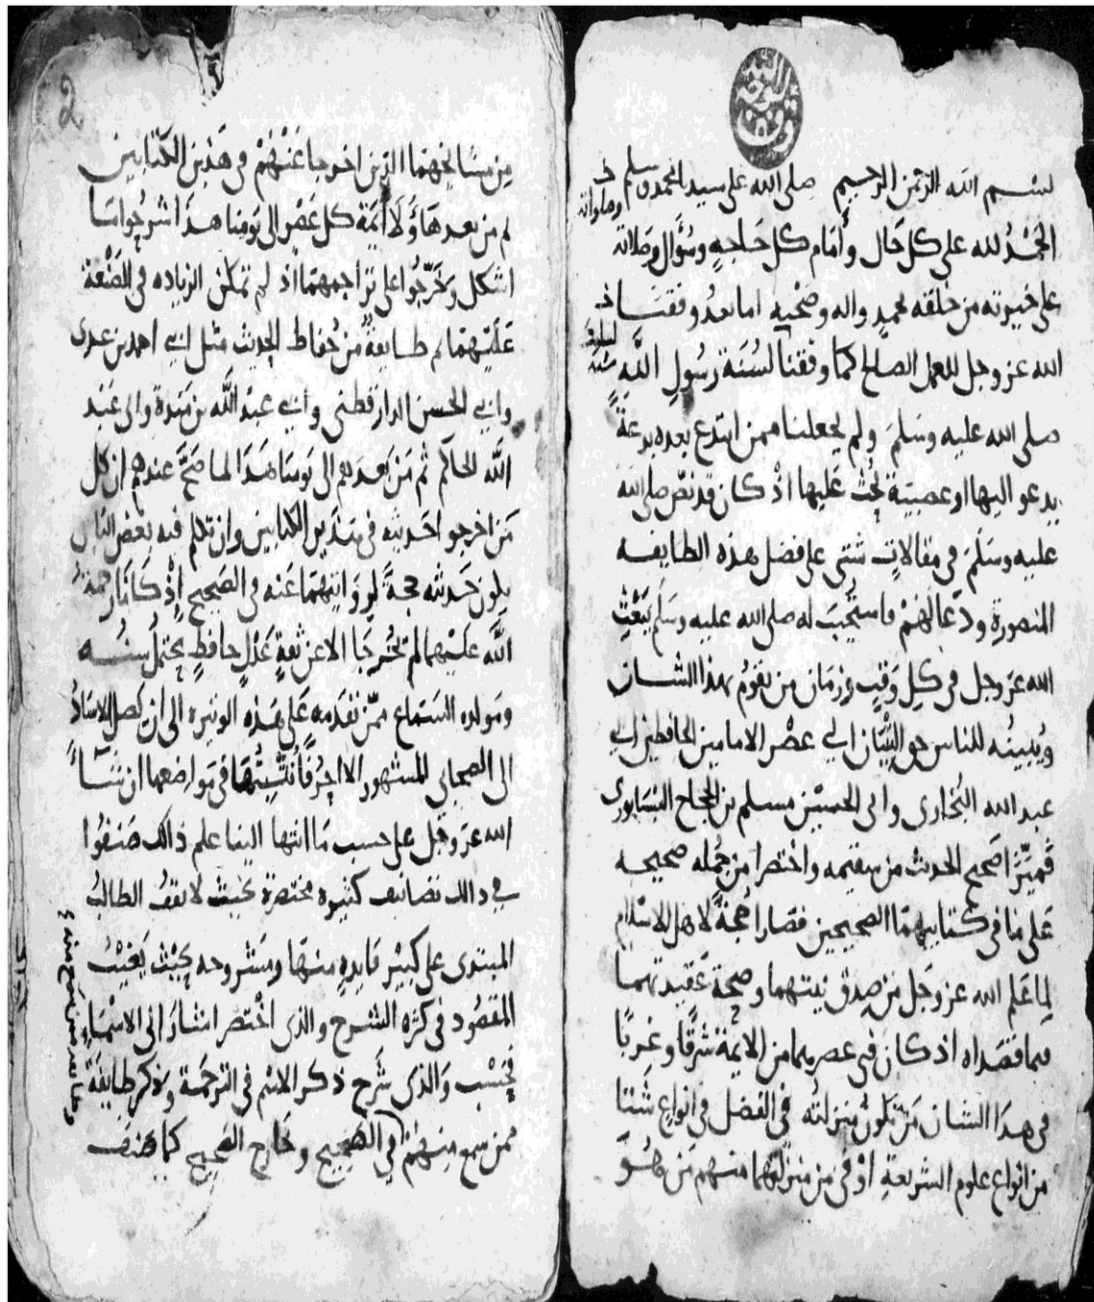 بسم الله الرحمن الرحيم صلى الله على سيدنا محمد وسلم
الحمد لله على كل حال وأمام كل حاجة وسؤال وصلاته
على خيرته من خلقه محمد واله وصحبه اما بعد وفقنا
الله عز وجل للعمل الصالح كما وفقنا لسنة رسول الله
صلى الله عليه وسلم ولم يجعلنا ممن ابتدع بعده بدعة
يدعو اليها او عصبية يحث عليها اذ كان قد نص صلى الله
عليه وسلم في مقالات شتى على فضل هذه الطايفه
المنصورة ودعا لهم فاستجيب له صلى الله عليه وسلم يبعث
الله عز وجل في كل وقت وزمان من يقوم بهذا الشان
ويبينه للناس حق التبيان الى عصر الامامين الحافظين ابي
عبد الله البخارى وابي الحسين مسلم بن الحجاج النيسابورى
فميزا صحيح الحديث من سقيمه واختصرا من جمله صحيحه
على ما في كتابيهما الصحيحين فصارا حجة لاهل الاسلام
لما علم الله عز وجل من صدق نيتهما وصحة عقيدتهما
فيما قصداه اذ كان في عصرهما من الايمة شرقا وغربا
في هذا الشان من تكون منزلته في الفضل في انواع شتا
من انواع علوم الشريعة اوفى من منزلتهما منهم من هو
2
من مشايخهما الذين اخرجا عنهم في هذين الكتابين
ثم من بعد هاولا أيمة كل عصر الى يومنا هذا شرحوا ما
اشكل وخرجوا على تراجمهما اذ لم تمكن الزياده في الصنعة
عليهما ثم طايفة من حفاظ الحديث مثل ابي احمد بن عدى
وابي الحسن الدارقطني وابي عبد الله بن مندة وابى عبد
الله الحاكم ثم من بعدهم الى يومنا هذا لما صح عندهم ان كل
من اخرجا حديثه في هذين الكتابين وان تكلم فيه بعض الناس
يكون حديثه حجة لروايتهما عنه في الصحيح اذ كانا رحمة
الله عليهما لم يخرجا الا عن ثقة عدل حافظ يحتمل سنه
ومولده السماع ممن تقدمه على هذه الوتيره الى ان يصل الاسناد
الى الصحابي المشهور الا احرفا نثبتها في مواضعها ان شاء
الله عز وجل على حسب ما انتها الينا علم ذالك صنفوا
في ذالك تصانيف كثيره مختصرة بحيث لا يقف الطالب
المبتدى على كبير فايده منها ومشروحه بحيث يغيب
المقصود في كثره الشرح والذى اختصر اشار الى الاسماء
فحسب والذى شرح ذكر الاسم في الترجمة ولا ذكر طايفة
ممن سمع منهم في الصحيح وخارج الصحيح كما صنف